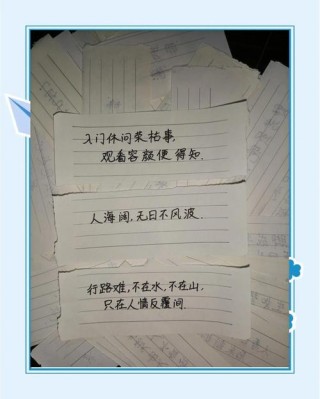 入门休问荣枯事,
观看容颜便得知.
人海阔,无日不风波.
行路难,不在水,不在山.
只在人情反覆间.